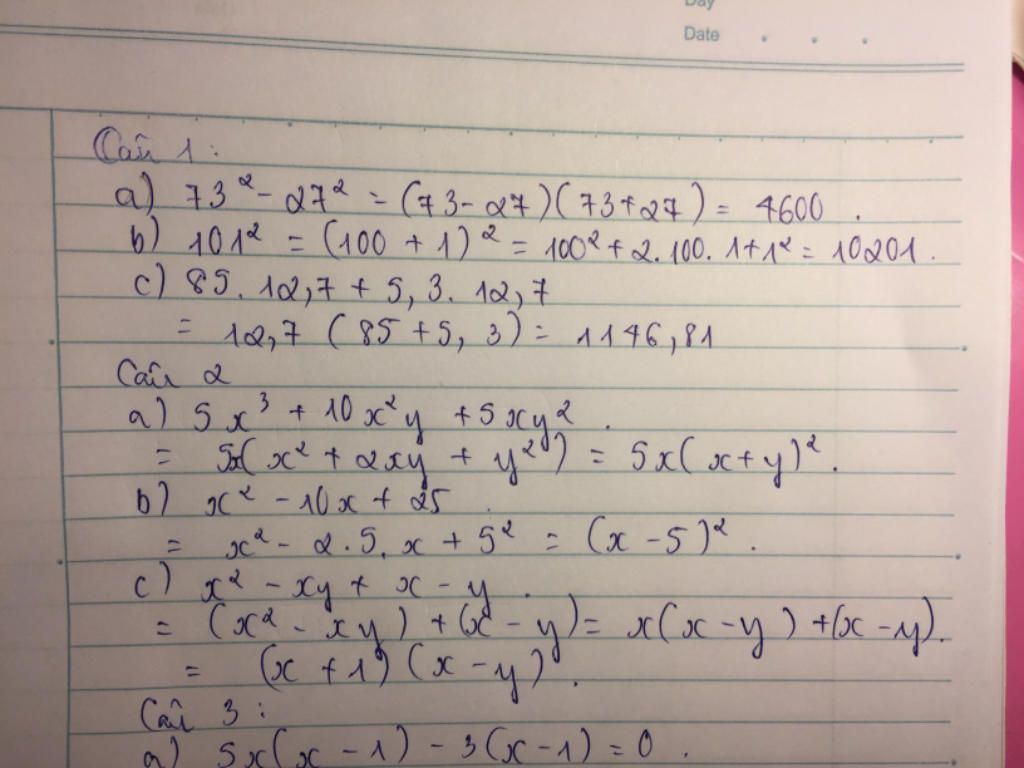 Day
Date
Câu 1:
a) 73² - 27² = (73 - 27)(73 + 27) = 4600.
b) 101² = (100 + 1)² = 100² + 2.100.1 + 1² = 10201.
c) 85. 12,7 + 5,3. 12,7
= 12,7 (85 + 5,3) = 1146,81
Câu 2
a) 5x³ + 10x²y + 5xy².
= 5x(x² + 2xy + y²) = 5x(x + y)².
b) x² - 10x + 25.
= x² - 2.5.x + 5² = (x - 5)².
c) x² - xy + x - y.
= (x² - xy) + (x - y) = x(x - y) + (x - y).
= (x + 1)(x - y).
Câu 3:
a) 5x(x - 1) - 3(x - 1) = 0.